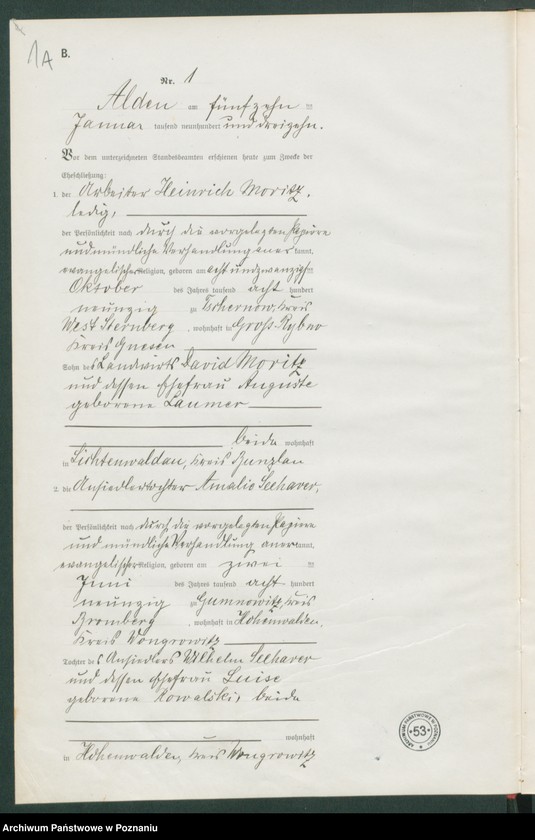 1A B.
Nr. 1
Alden am fünfzehn ten
Januar tausend neunhundert und dreizehn.
Vor dem unterzeichneten Standesbeamten erschienen heute zum Zwecke der
Eheschließung:
1. der Arbeiter Heinrich Moritz,
ledig,
der Persönlichkeit nach durch die vorgelegten Papiere
und mündliche Verhandlung aner kannt,
evangelischer Religion, geboren am acht und zwanzigsten
Oktober des Jahres tausend acht hundert
neunzig zu Tschernow, Kreis
West Sternberg, wohnhaft in Groß Rybno
Kreis Gnesen
Sohn des Landwirts David Moritz
und dessen Ehefrau Auguste
geborene Laumer
beide wohnhaft
in Lichtenwaldau, Kreis Bunzlau
2. die Ansiedlertochter Amalie Seehaver,
der Persönlichkeit nach durch die vorgelegten Papiere
und mündliche Verhandlung aner kannt,
evangelischer Religion, geboren am zwei ten
Juni des Jahres tausend acht hundert
neunzig zu Gumnowitz, Kreis
Bromberg, wohnhaft in Hohenwalden,
Kreis Wongrowitz
Tochter des Ansiedlers Wilhelm Seehaver
und dessen Ehefrau Luise
geborene Kowalski, beide
wohnhaft
in Hohenwalden, Kreis Wongrowitz
ARCHIWUM PAŃSTWOWE W POZNANIU
53
Archiwum Państwowe w Poznaniu